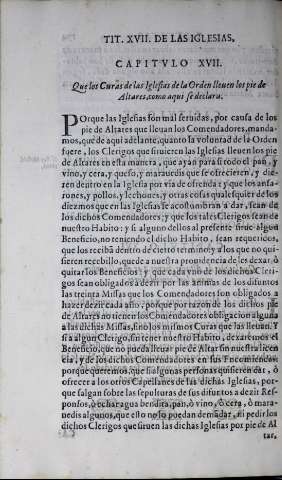 TIT. XVII. DE LAS IGLESIAS.
CAPITVLO XVII.
Que los Curas de las Iglesias de la Orden lleuen los pie de
Altares, como aqui se declara.
POrque las Iglesias son mal seruidas, por causa de los
pie de Altares que lleuan los Comendadores, manda-
mos, que de aqui adelante, quanto la voluntad de la Orden
fuere, los Clerigos que siruieren las Iglesias lleuen los pie
de Altares en esta manera, que ayan para si todo el pan, y
vino, y cera, y queso, y marauedis que se ofrecieren, y die-
ren dentro en la Iglesia por via de ofrenda: y que los ansa-
rones, y pollos, y lechones, y otras cosas qualesquier de los
diezmos que en las Iglesias se acostumbran a dar, sean de
los dichos Comendadores; y que los tales Clerigos sean de
nuestro Habito: y si algunos dellos al presente tiene algun
Beneficio, no teniendo el dicho Habito, sean requeridos,
que los reciba dentro de cierto termino, y a los que no qui-
sieren recebillo, quede a nuestra prouidencia de les dexar, ò
quitar los Beneficios: y que cada vno de los dichos Cleri-
gos sean obligados à dezir por las animas de los difuntos
las treinta Missas que los Comendadores son obligados a
hazer dezir cada año, porque por razon de los dichos pie
de Altares no tienen los Comendadores obligacion alguna
a las dichas Missas, sino los mismos Curas que las lleuan. Y
si a algun Clerigo, sin tener nuestro Habito, dexaremos el
Beneficio, que no pueda lleuar pie de Altar sin nuestra licen
cia, y de los dichos Comendadores en sus Encomiendas:
porque queremos, que si algunas personas quisieren dar, ò
ofrecer a los otros Capellanes de las dichas Iglesias, por-
que salgan sobre las sepulturas de sus difuntos a dezir Res-
ponsos, ò echar agua bendita, pan, ò vino, ò cera, ò mara-
uedis algunos, que esto no lo puedan demandar, ni pedir los
dichos Clerigos que siruen las dichas Iglesias por pie de Al
tar,